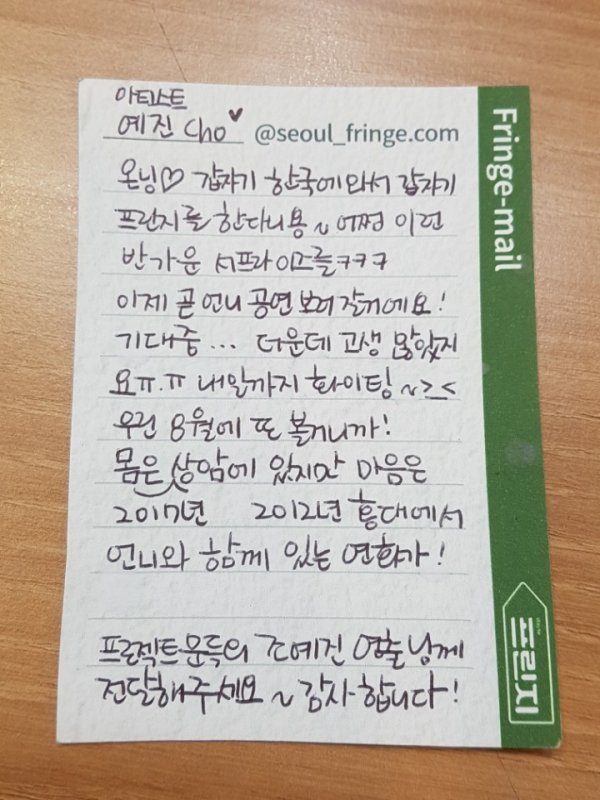 아티스트
예진 Cho♥ @seoul_fringe.com
온닝♡ 갑자기 한국에와서 갑자기
프린지를 한다니용~ 어쩜 이런
반가운 서프라이즈를ㅋㅋㅋ
이제 곧 언니 공연 보러 갈게에요!
기대중... 더운데 고생 많았지
요ㅠ.ㅠ 내일까지 화이팅~><
우린 8월에 또 볼거니까!
몸은 상암에 있지만 마음은
2017년 2012년 홍대에서
언니와 함께 있는 연화가!
프로젝트문득의 조예진 연출님께
전달해주세요~ 감사합니다!
Fringe-mail
프린지